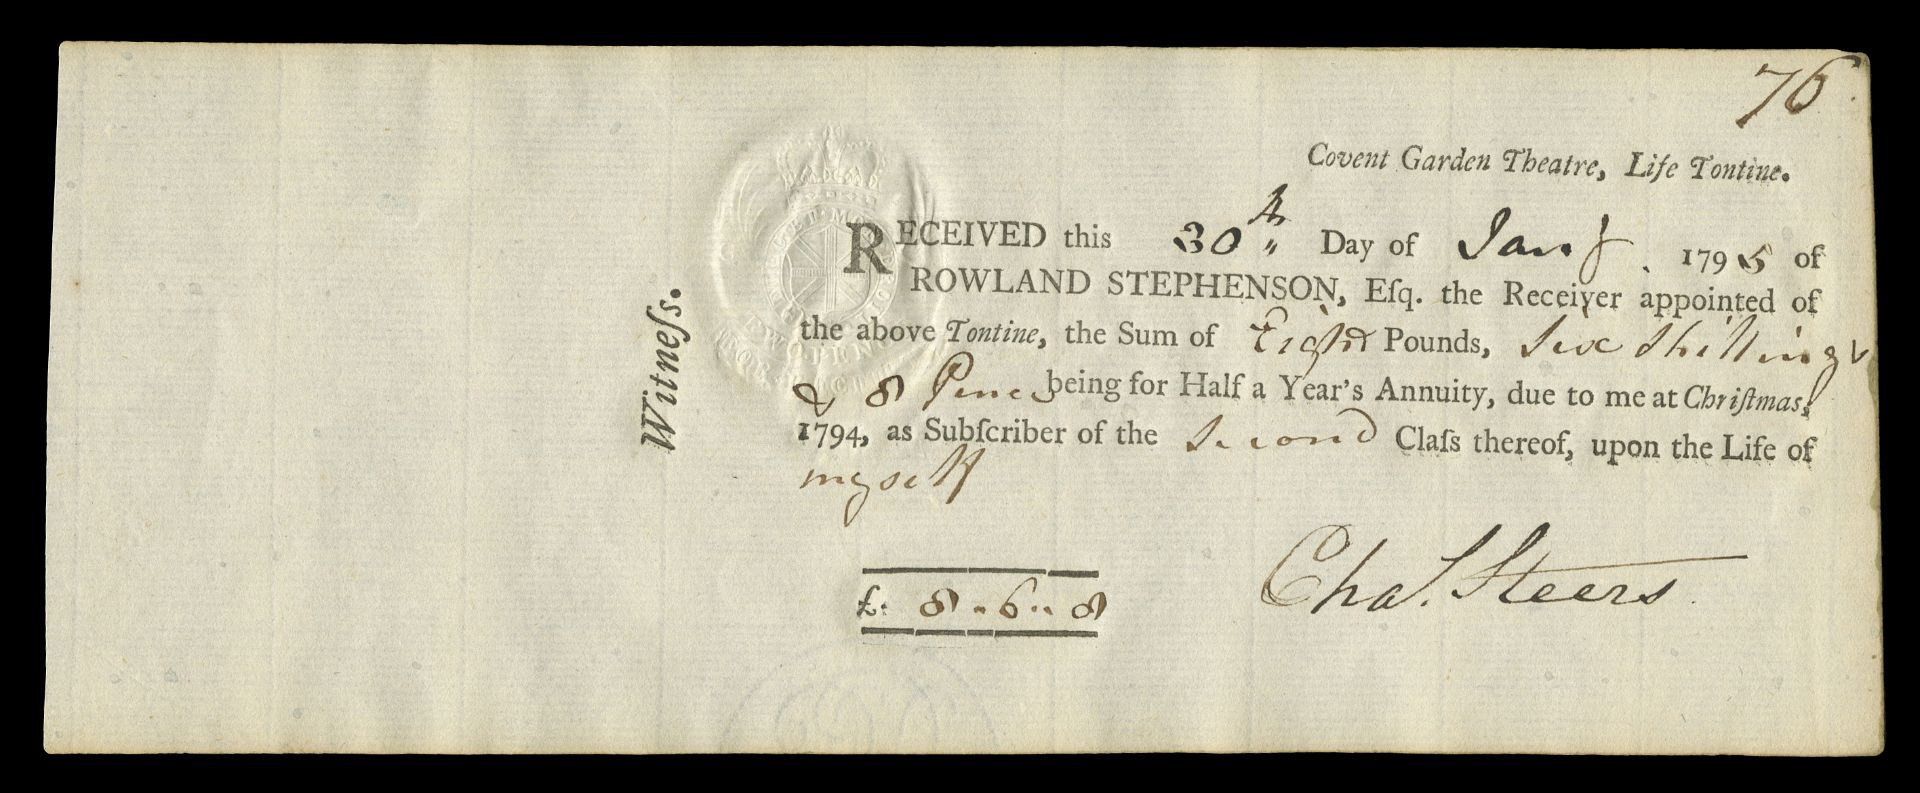 76
Covent Garden Theatre, Life Tontine.
RECEIVED this 30th Day of Jany. 1795 of
ROWLAND STEPHENSON, Eſq. the Receiver appointed of
the above Tontine, the Sum of Eight Pounds, Six Shillings
& 8 Pence being for Half a Year's Annuity, due to me at Chriſtmas,
1794, as Subſcriber of the Second Claſs thereof, upon the Life of
myself
Witneſs.
£. 8 " 6 " 8
Chas. Steers